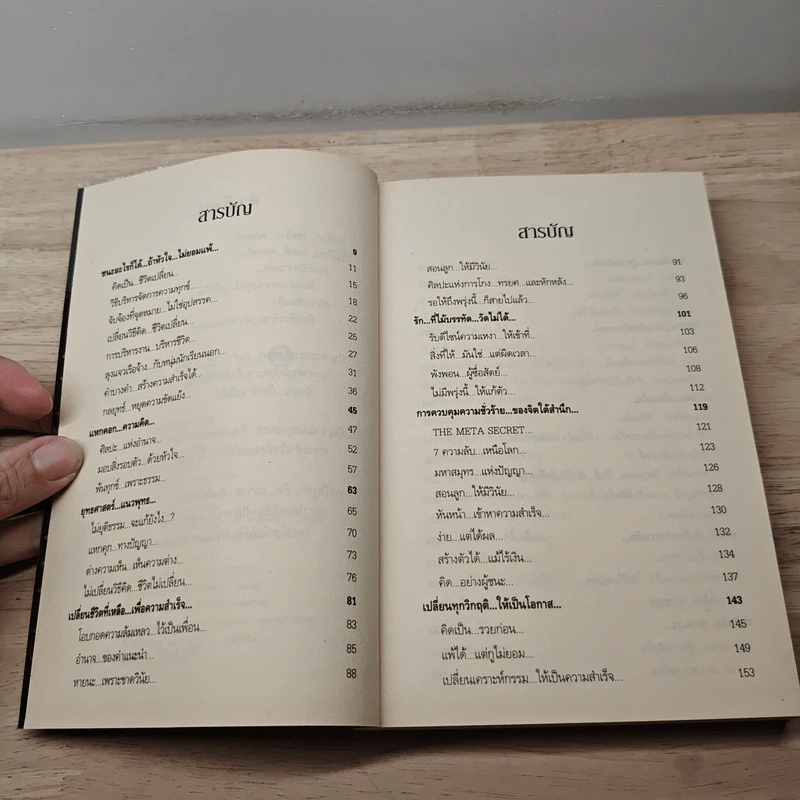 สารบัญ
ชนะอะไรก็ได้...ถ้าหัวใจ...ไม่ยอมแพ้... 9
คิดเป็น...ชีวิตเปลี่ยน... 11
วิธีบริหารจัดการความทุกข์... 15
จับจ้องที่จุดหมาย...ไม่ใช่อุปสรรค... 18
เปลี่ยนวิธีคิด...ชีวิตเปลี่ยน... 22
การบริหารงาน...บริหารชีวิต... 25
ลุงแจวเรือจ้าง...กับหนุ่มนักเรียนนอก... 27
คำบางคำ...สร้างความสำเร็จได้... 31
กลยุทธ์...หยุดความขัดแย้ง... 36
แหกคอก...ความคิด... 45
ศิลปะ...แห่งอำนาจ... 47
มอบสิ่งรอบตัว...ด้วยหัวใจ... 52
พ้นทุกข์...เพราะธรรม... 57
ยุทธศาสตร์...แนวพุทธ... 63
ไม่ยุติธรรม...จะแก้ยังไง...? 65
แหกคุก...ทางปัญญา... 70
ต่างความเห็น...เห็นความต่าง... 73
ไม่เปลี่ยนวิธีคิด...ชีวิตไม่เปลี่ยน... 76
เปลี่ยนชีวิตที่เหลือ...เพื่อความสำเร็จ... 81
โอบกอดความล้มเหลว...ไว้เป็นเพื่อน... 83
อำนาจ...ของคำแนะนำ... 85
หายนะ...เพราะขาดวินัย... 88
สารบัญ
สอนลูก...ให้มีวินัย... 91
ศิลปะแห่งการโกง...ทรยศ...และหักหลัง... 93
รอให้ถึงพรุ่งนี้...ก็สายไปแล้ว... 96
รัก...ที่ไม้บรรทัด...วัดไม่ได้... 101
รับดีไซน์ความเหงา...ให้เข้าที่... 103
สิ่งที่ให้...มันใช่...แต่ผิดเวลา... 106
พังพอน...ผู้ซื่อสัตย์... 108
ไม่มีพรุ่งนี้...ให้แก้ตัว... 112
การควบคุมความชั่วร้าย...ของจิตใต้สำนึก... 119
THE META SECRET... 121
7 ความลับ...เหนือโลก... 123
มหาสมุทร...แห่งปัญญา... 126
สอนลูก...ให้มีวินัย... 128
หันหน้า...เข้าหาความสำเร็จ... 130
ง่าย...แต่ได้ผล... 132
สร้างตัวได้...แม้ไร้เงิน... 134
คิด...อย่างผู้ชนะ... 137
เปลี่ยนทุกวิกฤติ...ให้เป็นโอกาส... 143
คิดเป็น...รวยก่อน... 145
แพ้ได้...แต่กูไม่ยอม... 149
เปลี่ยนเคราะห์กรรม...ให้เป็นความสำเร็จ... 153